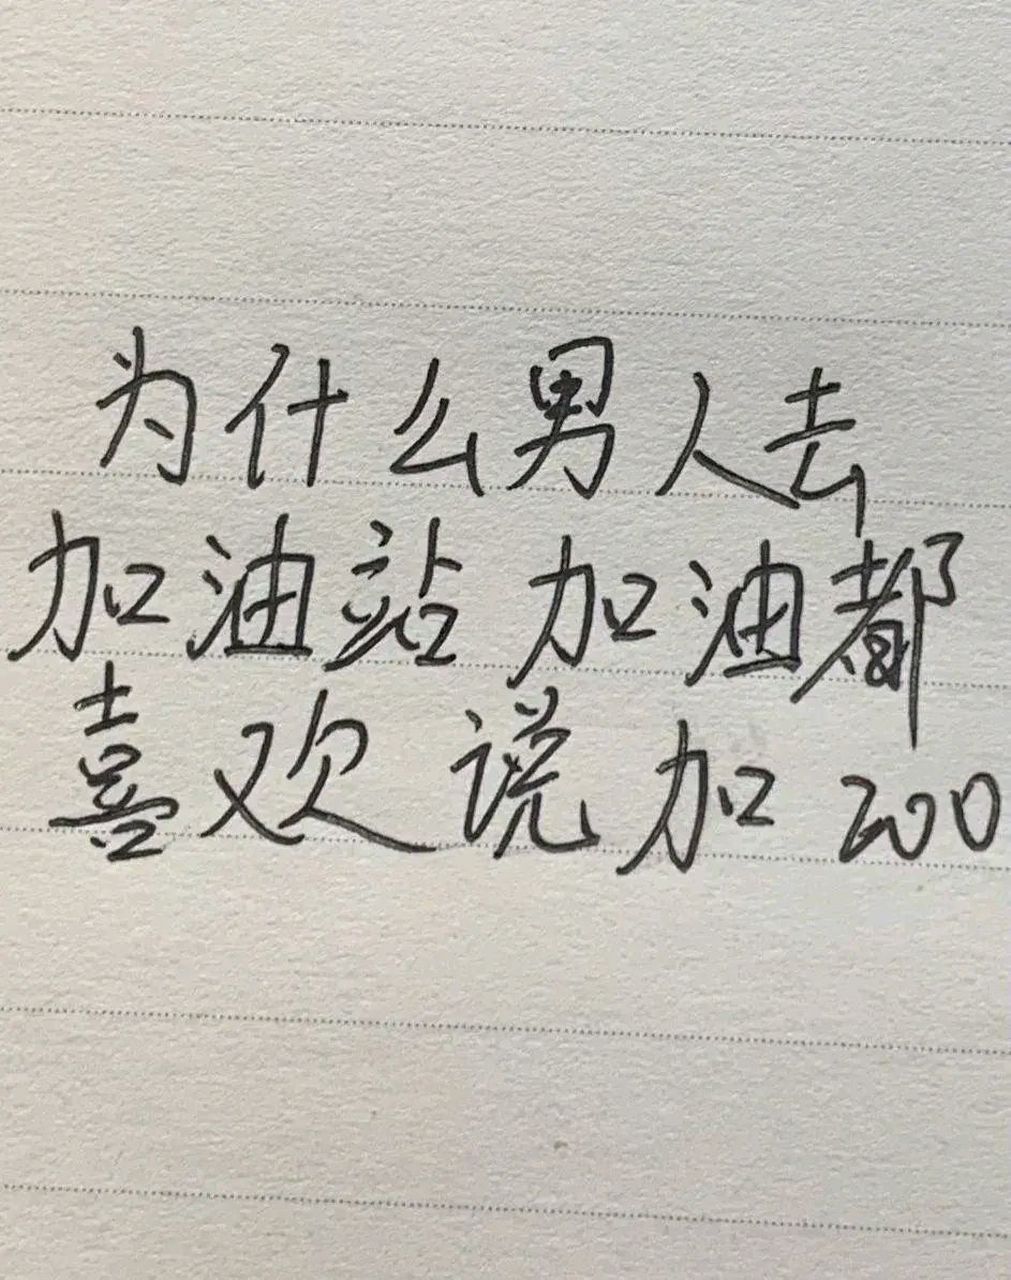 为什么男人去
加油站加油都
喜欢说加200